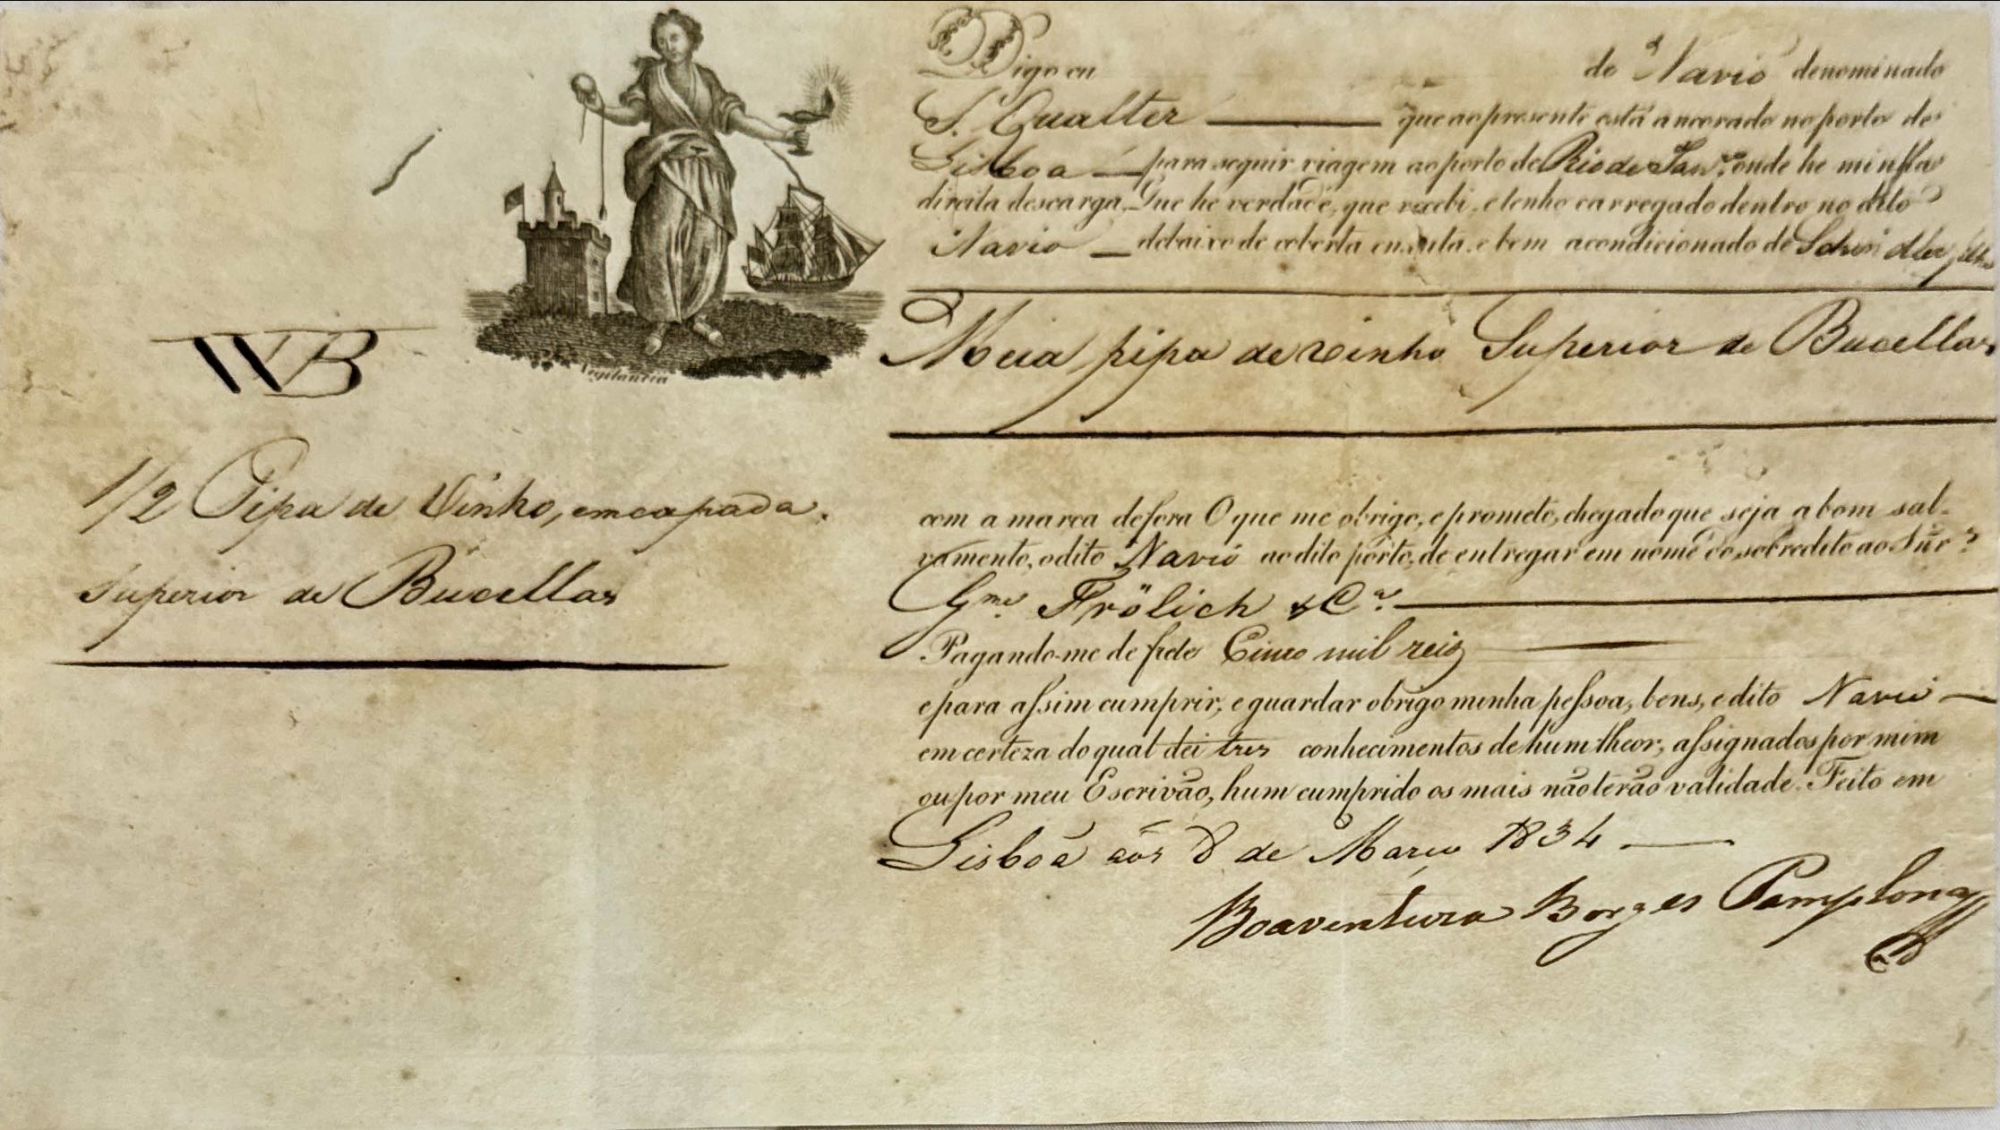 Vigilancia
WB
1/2 Pipa de Vinho, emcapada.
Superior de Bucellas
Digo eu do Navio denominado
S. Gualter que ao presente está ancorado no porto de
Lisboa para seguir viagem ao porto de Rio de Janr.º onde he minha
direita descarga, Que he verdade, que recebi, e tenho carregado dentro no dito
Navio debaixo de coberta enxuta, e bem acondicionado de
Meia pipa de vinho Superior de Bucellas
com a marca de fora O que me obrigo, e prometo, chegado que seja a bom sal-
vamento, o dito Navio ao dito porto, de entregar em nome do sobredito ao Snr.
Gme. Frölich & Ca.
Pagando-me de frete Cinco mil reis
e para assim cumprir, e guardar obrigo minha pessoa, bens, e dito Navio
em certeza do qual dei tres conhecimentos de hum theor, assignados por mim
ou por meu Escrivão, hum cumprido os mais não terão validade. Feito em
Lisboa aos 8 de Março 1834
Boaventura Borges Pamplona